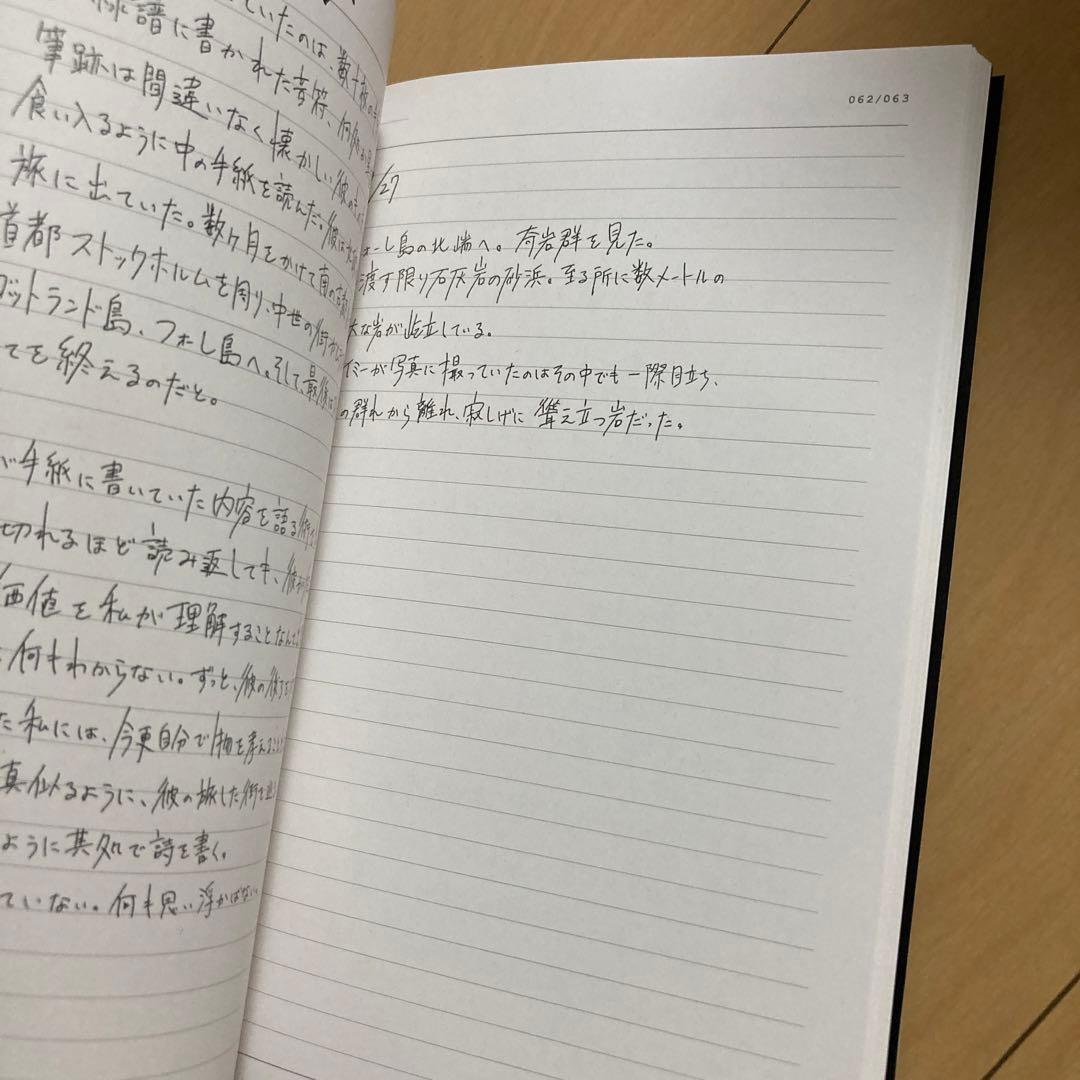 ていたのは、数十枚の
線譜に書かれた音符、何
筆跡は間違いなく懐かしい彼の
食い入るように中の手紙を読んだ。彼は
旅に出ていた。数ヶ月をかけて
首都ストックホルムを周り、中世の街
ゴットランド島、フォーレ島へ。そして、最後は
てを終えるのだと。
が手紙に書いていた内容を語る
切れるほど読み返しても、彼が
価値を私が理解することなんて
何もわからない。ずっと、彼の後ろを
た私には、今更自分で物を考えること
真似るように、彼の旅した街を
ように其処で詩を書く。
ていない。何も思い浮かばない
062/063
/27
ォーレ島の北端へ。奇岩群を見た。
渡す限り石灰岩の砂浜。至る所に数メートルの
大な岩が屹立している。
イミーが写真に撮っていたのはその中でも一際目立ち、
の群れから離れ、寂しげに聳え立つ岩だった。